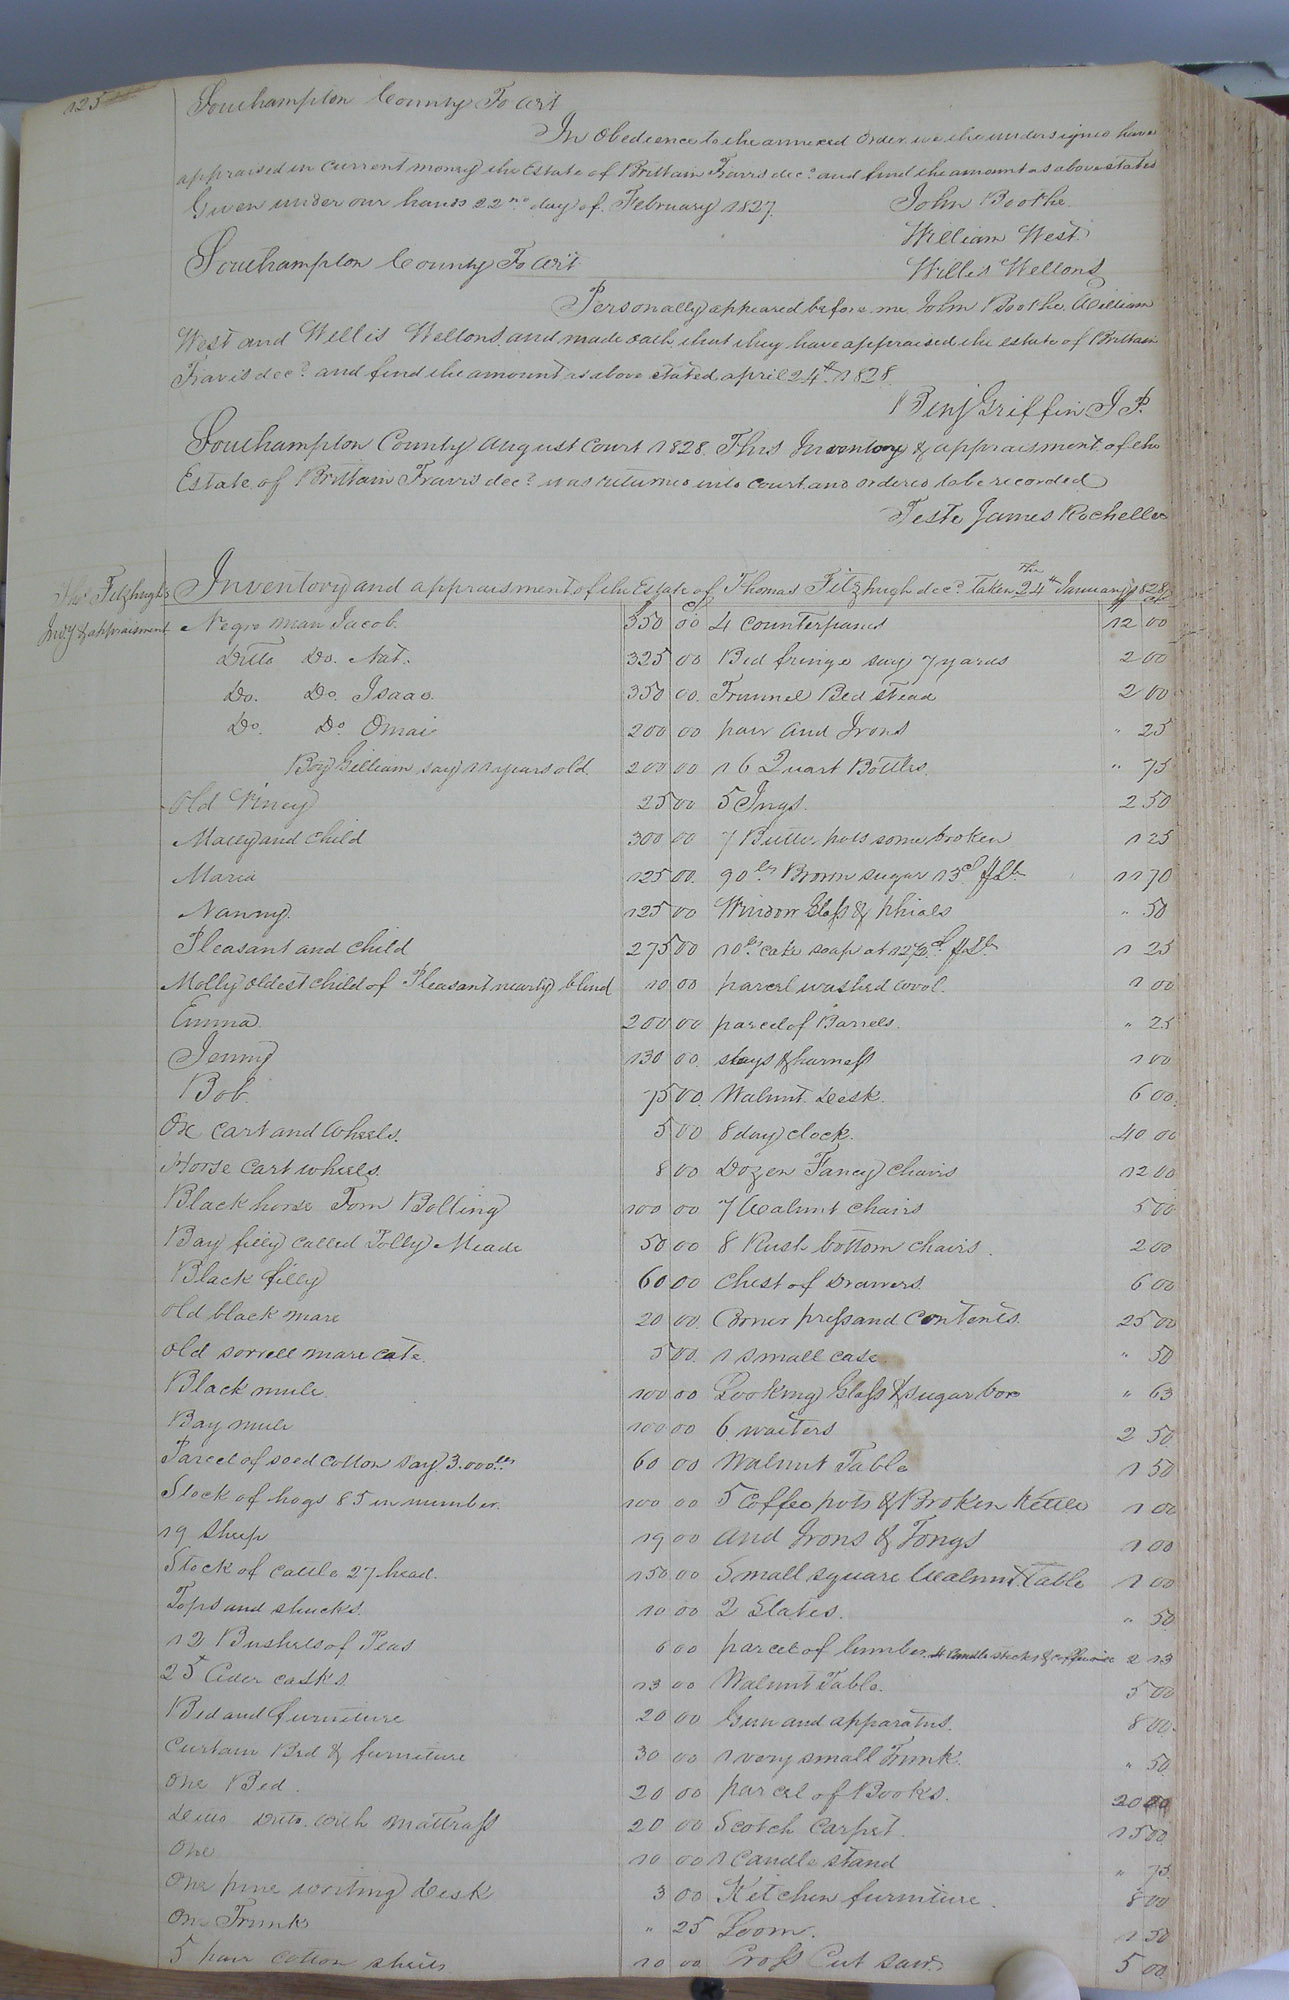 125
Southampton County To Wit
In Obedience to the annexed Order we the undersigned have
appraised in current money the Estate of Brittain Travis decd. and find the amount as above stated
Given under our hands 22nd. day of February 1827.
John Boothe
William West
Willis Wellons
Southampton County To Wit
Personally appeared before me John Boothe William
West and Willis Wellons and made oath that they have appraised the estate of Brittain
Travis decd. and find the amount as above stated april 24th. 1828.
Benj Griffin J.P.
Southampton County August Court 1828. This Inventory & appraisment of the
Estate of Brittain Travis decd. was returned into court and ordered to be recorded
Teste James Rochelle
Thos. Fitzhugh's
Invy & appraisment
Inventory and appraisment of the Estate of Thomas Fitzhugh decd. Taken The 24th January 1828
Negro man Jacob. 350 00 4 Counterpanes 12 00
Ditto Do. Nat. 325 00 Bed fringe say 7 yards 2 00
Do. Do. Isaac. 350 00 Trunnel Bed stead 2 00
Do. Do. Omai 200 00 pair And Irons " 25
Boy Gilliam say 11 years old 200 00 16 Quart Bottles " 75
Old Viney 25 00 5 Jugs. 2 50
Macey and child 300 00 7 Butter pots some broken 1 25
Maria 125 00 90 lbs Brown sugar 13d. pr Lb. 11 70
Nanny. 125 00 Window Glass & phials " 50
Pleasant and child 275 00 10 lbs cake soap at 12½d. pr Lb. 1 25
Molly oldest child of Pleasant nearly blind 10 00 parcel washed wool. 1 00
Emma 200 00 parcel of Barrels. " 25
Jenny 130 00 slays & harness 1 00
Bob 75 00 Walnut Desk. 6 00
Ox cart and wheels. 5 00 8 day clock. 40 00
Horse cart wheels 8 00 Dozen Fancy chairs 12 00
Black horse Tom Bolling 100 00 7 Walnut chairs 5 00
Bay filly called Polly Meade 50 00 8 Rush bottom chairs. 2 00
Black filly 60 00 chest of Drawers. 6 00
old black mare 20 00 Corner press and contents. 25 00
old sorrell mare cate. 5 00 1 small case. " 50
Black mule 100 00 Looking Glass & sugar box " 63
Bay mule 100 00 6 waiters 2 50
Parcel of seed cotton say 3.000 lbs 60 00 Walnut Table 1 50
Stock of hogs 85 in number. 100 00 5 Coffee pots & Broken Kettle 1 00
19 Sheep 19 00 And Irons & Tongs 1 00
Stock of cattle 27 head. 150 00 Small square Walnut Table 1 00
Tops and shucks. 10 00 2 Slates. " 50
12 Bushels of Peas 6 00 parcel of lumber 4 candle sticks & 2 13
25 Cider casks. 13 00 Walnut Table. 5 00
Bed and furniture 20 00 Gun and apparatus. 8 00
Curtain Bed & furniture 30 00 1 very small Trunk. " 50
One Bed. 20 00 parcel of Books. 20 00
Ditto with mattrass 20 00 Scotch Carpet. 15 00
One 10 00 1 Candle stand " 75
One pine writing desk 3 00 Kitchen furniture. 8 00
One Trunk " 25 Loom. 1 50
5 pair cotton sheets 10 00 Cross Cut saw. 5 00